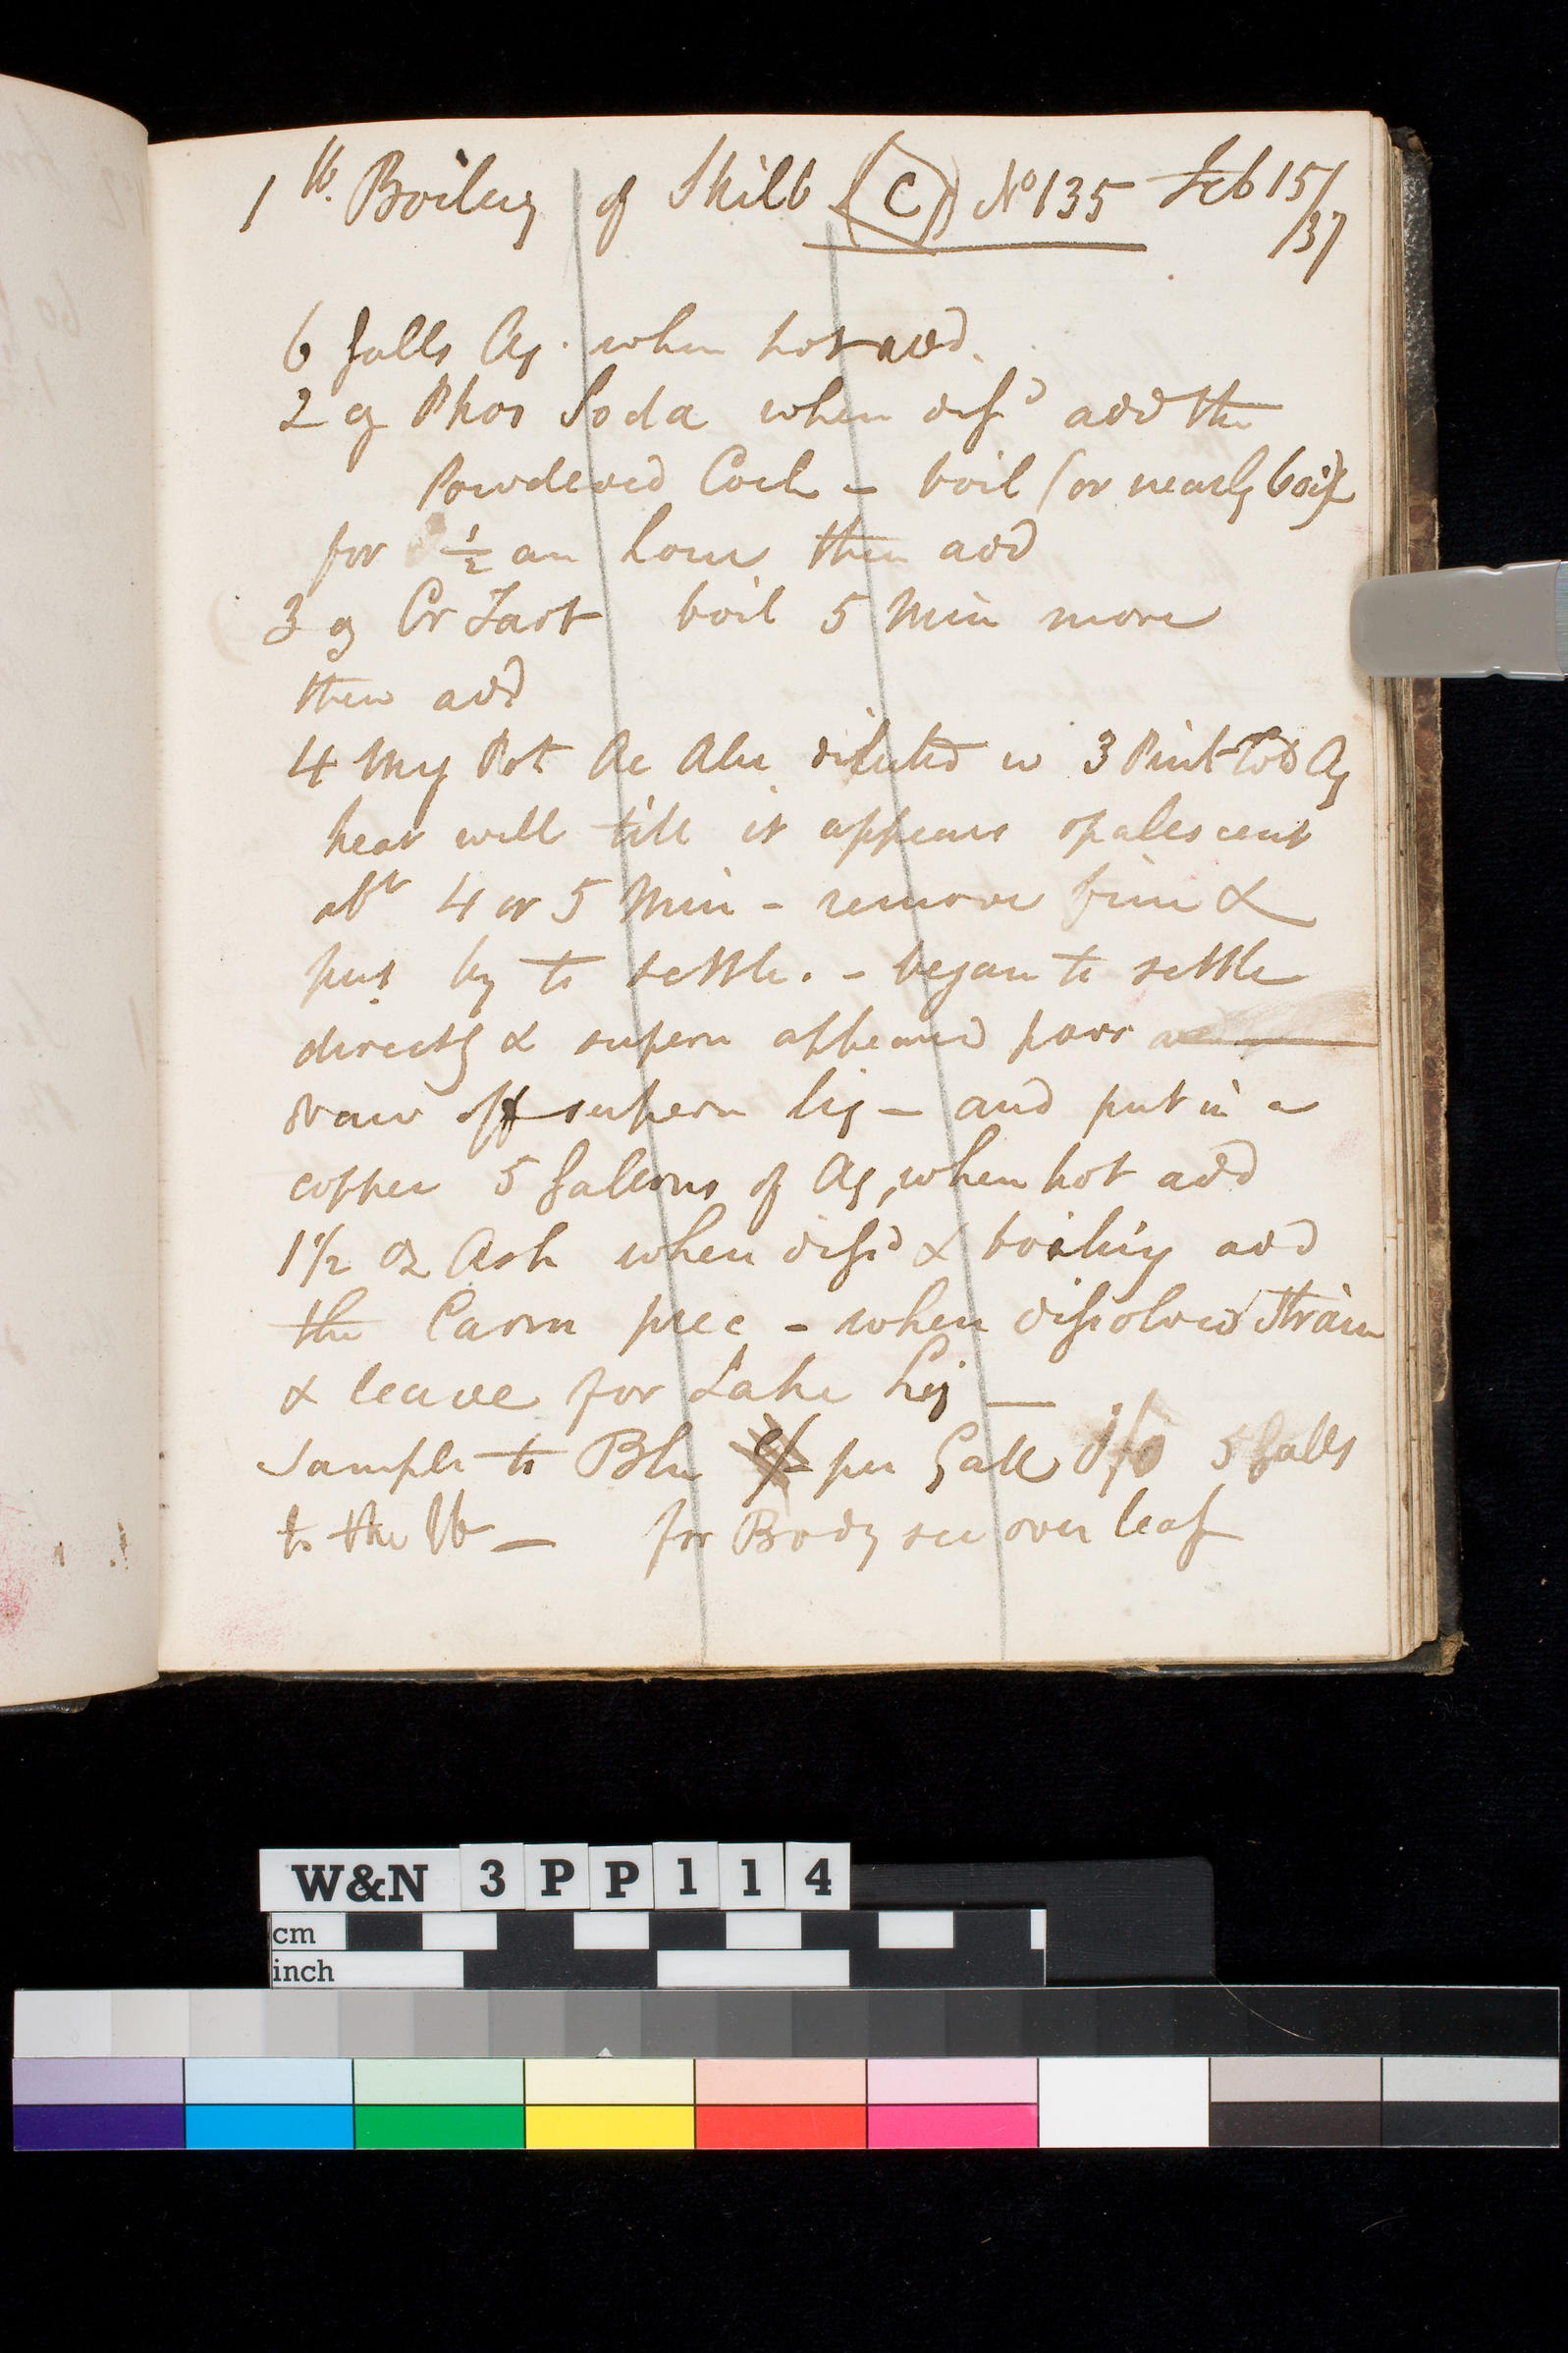 1 lb. Boiling of Skilb (C) No 135 Feb 15/
/37
6 Galls Aq. when hot add.
2 oz Phos Soda when disd add the
Powdered Coch - boil (or nearly boil)
for 1/2 an hour then add
3 oz Cr Tart boil 5 Min more
then add
4 My Pot Ac Alu diluted w 3 Pint Cold Aq
heat well till it appears opalescent
abt 4 or 5 Min - remove &
put by to settle. - began to settle
directly & supern appeared poor
draw off supern liq - and put in a
copper 5 Gallons of Aq, when hot add
1 1/2 oz Ash when dissd & boiling add
the Carm prec - when dissolved Strain
& leave for Lake Liq —
Sample to Blu per Gall 5 Galls
to the lb — for Body see over leaf
W&N 3PP114
cm
inch